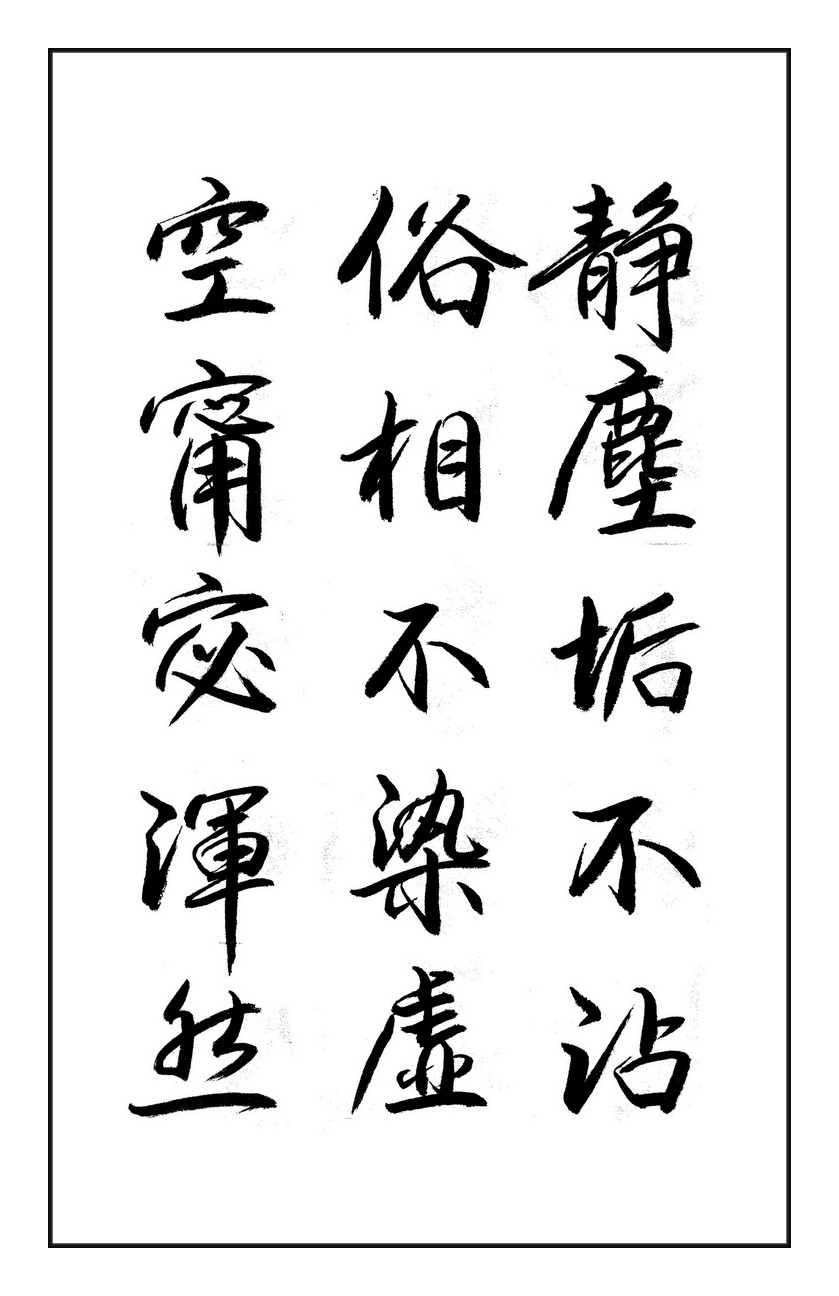 静塵垢不沾
俗相不染虛
空甯宓渾然